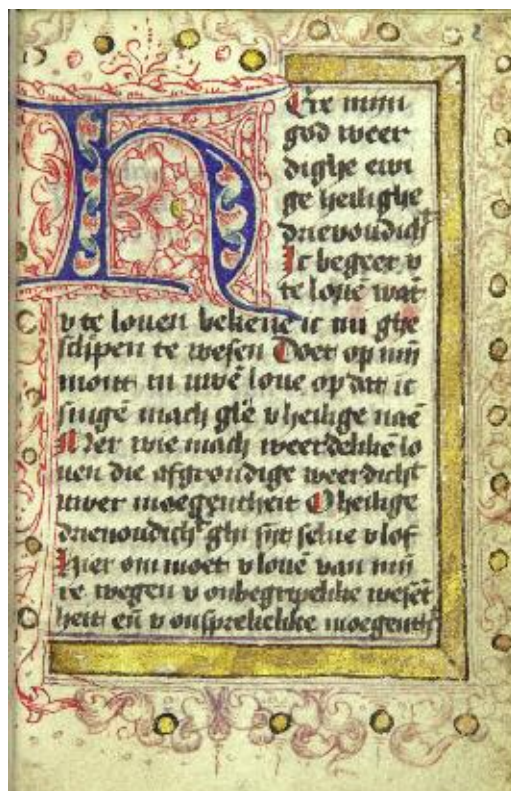 2
HEre mijn
god weer
dighe ewi
ge heilighe
drievoudich
Ic begeer v
te louē wāt
v te louen bekēne ic mi ghe
scapen te wesen Doet op mijn
mont in uwē loue op dat ic
singē mach glē v heilige naē
Mer wie mach weerdelikē lo
uen die afgrondige weerdich
uwer moegentheit O heilige
drievoudich ghi sijt selue v lof
Hier om moet v louē van mij
re wegen v onbegripelike wesēt
heit eñ v onsprekelike moegenth